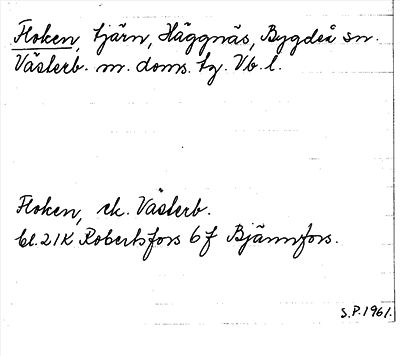 Floken, tjärn, Häggnäs, Bygdeå sn.
Västerb. m. doms. tg. Vb. l.
Floken, ek. Västerb.
bl. 21K Robertsfors 6f Bjännfors.
S.P. 1961.